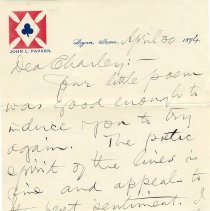 JOHN L. PARKER.
Lynn, Mass., April 30 1894
Dear Charley:-
Your little poem
was good enough to
induce you to try
again. The
spirit of the lines is
fine and appeal to
the best sentiment. I